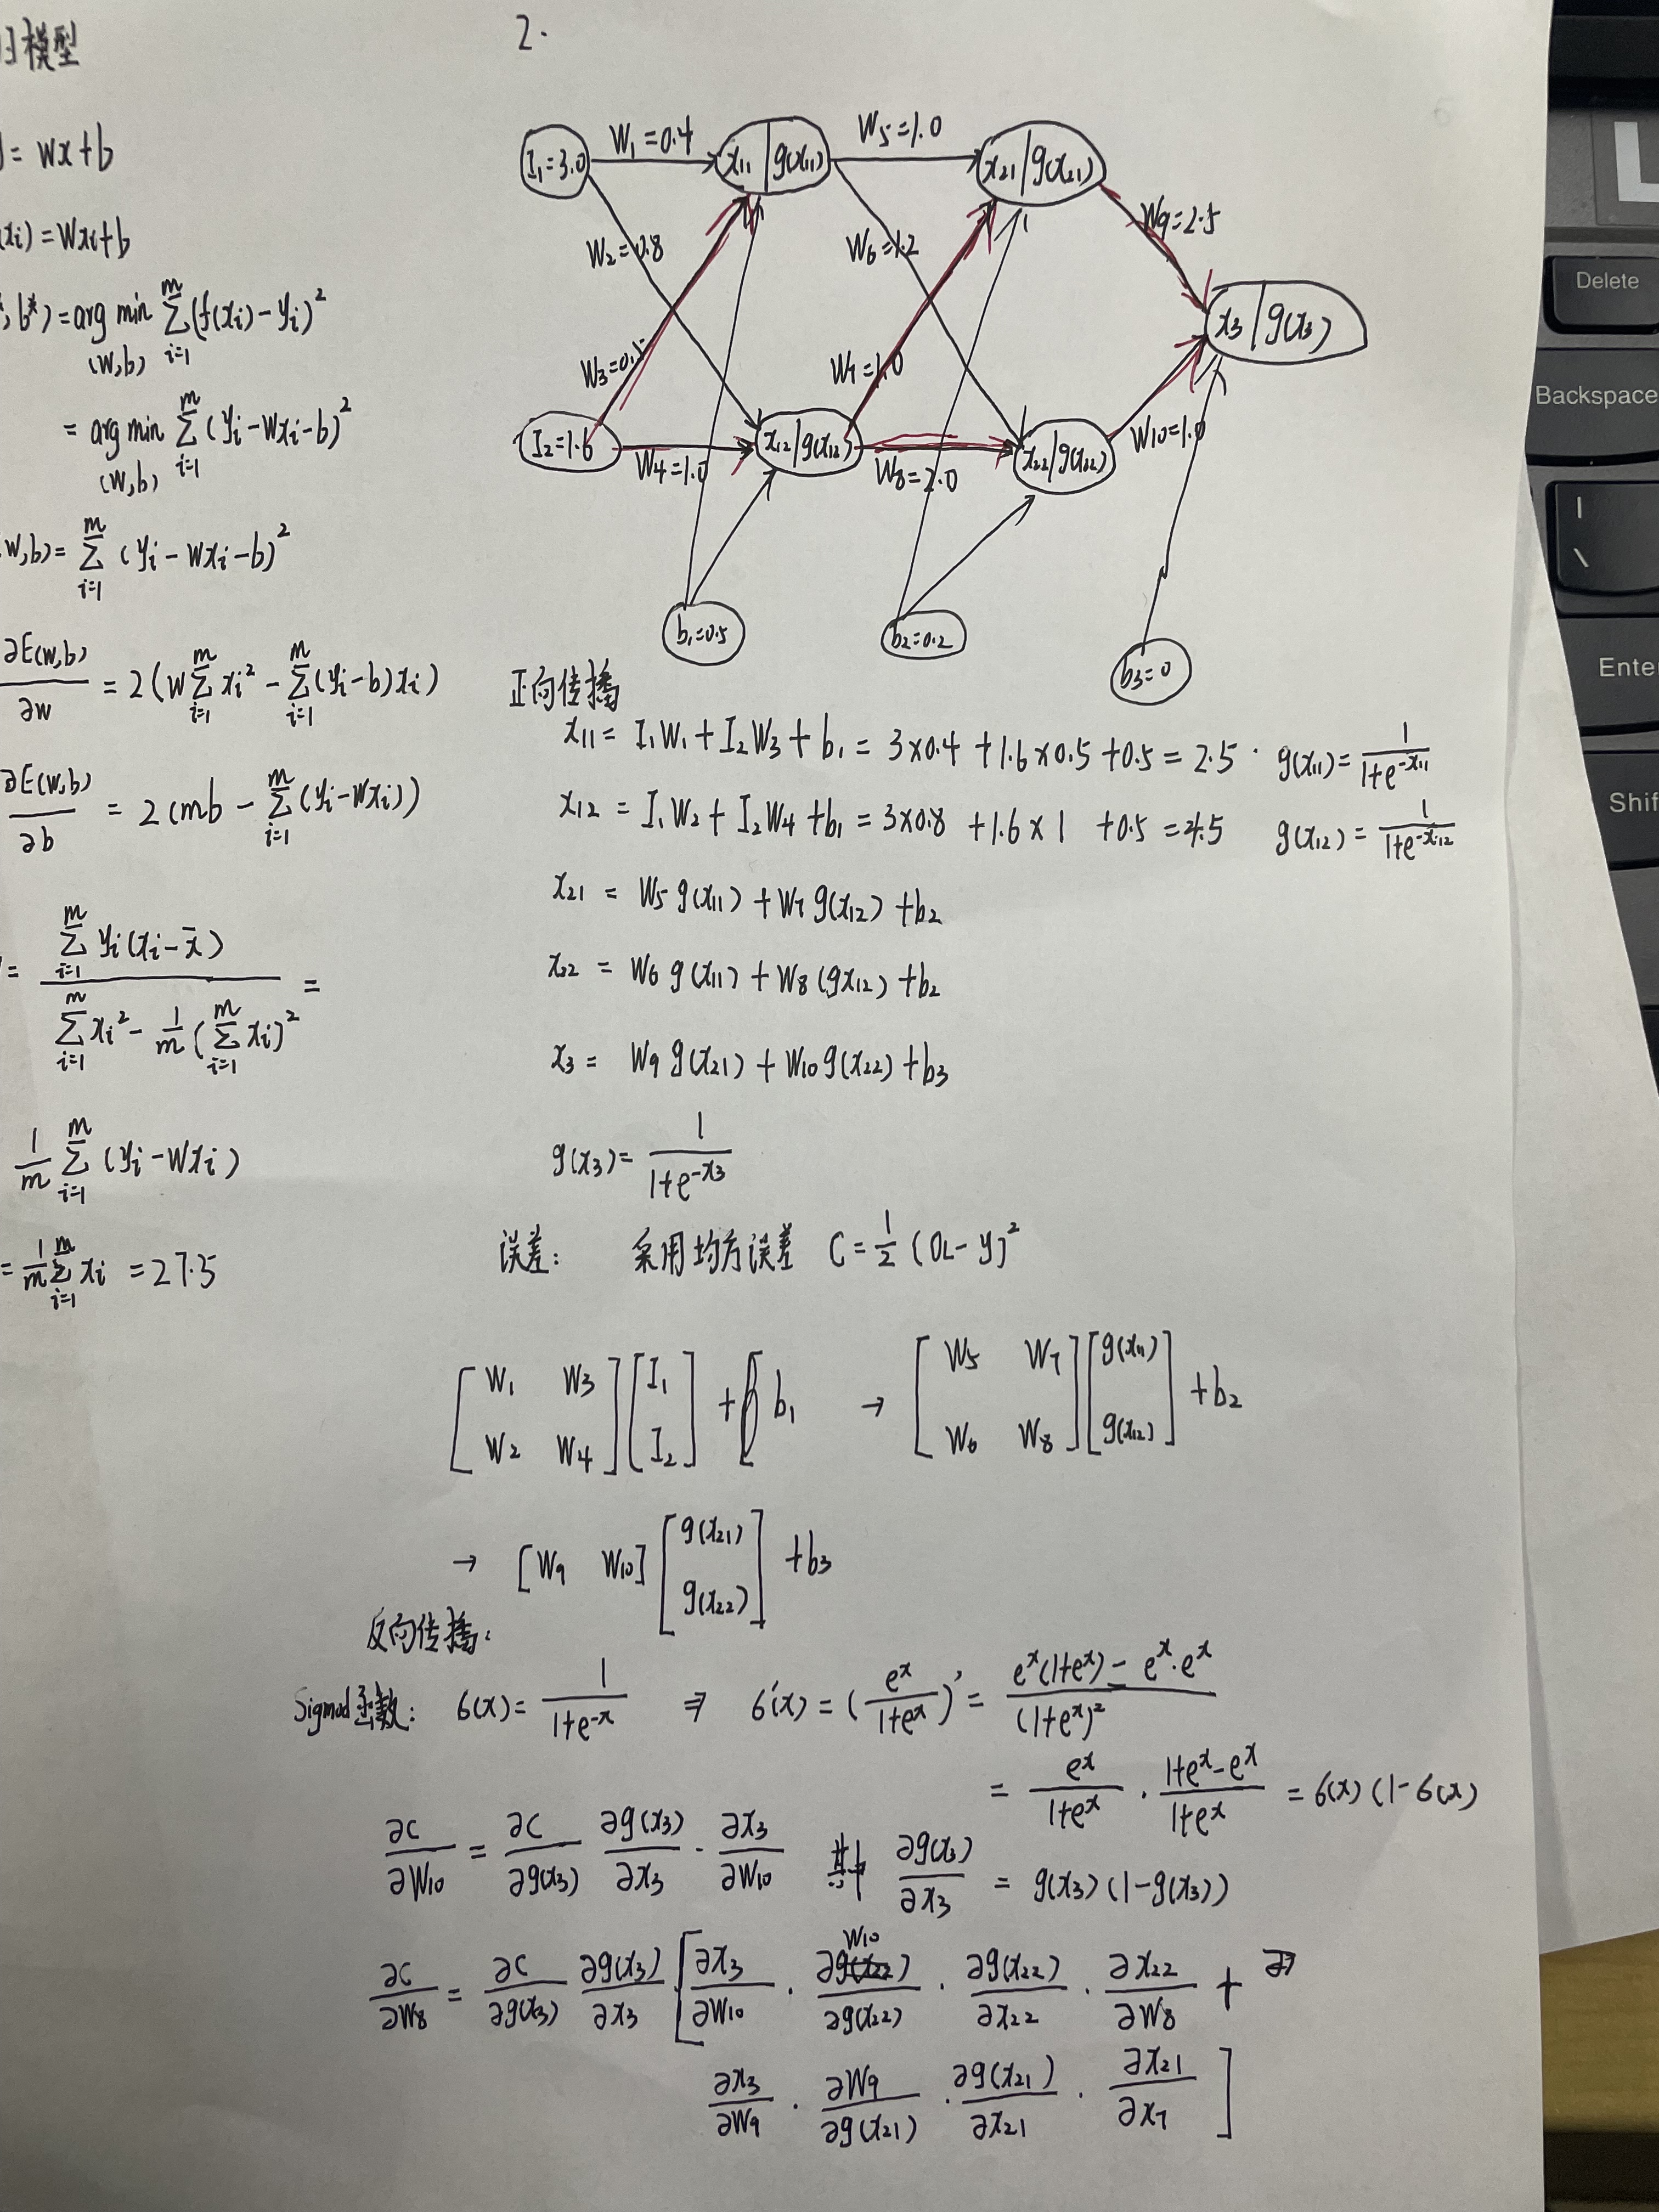 归模型
= wx+b
(xi) = wxi+b
*, b*) = arg min Σ (f(xi) - yi)²
(w,b) i=1 m
= arg min Σ (yi - wxi - b)²
(w,b) i=1 m
w,b) = Σ (yi - wxi - b)²
i=1 m
∂E(w,b)/∂w = 2(w Σ xi² - Σ (yi - b)xi)
∂E(w,b)/∂b = 2(mb - Σ (yi - wxi))
= Σ yi(xi - x̄) / (Σ xi² - 1/m (Σ xi)²) =
1/m Σ (yi - wxi)
= 1/m Σ xi = 27.5
2.
I1=3.0
W1=0.4
x11 | g(x11)
W5=1.0
x21 | g(x21)
W2=0.8
W6=1.2
W9=2.5
x3 | g(x3)
W3=0.5
W7=1.0
I2=1.6
W4=1.0
x12 | g(x12)
W8=2.0
x22 | g(x22)
W10=1.0
b1=0.5
b2=0.2
b3=0
正向传播
x11 = I1W1 + I2W3 + b1 = 3×0.4 + 1.6×0.5 + 0.5 = 2.5 . g(x11) = 1/(1+e^-x11)
x12 = I1W2 + I2W4 + b1 = 3×0.8 + 1.6×1 + 0.5 = 4.5 g(x12) = 1/(1+e^-x12)
x21 = W5 g(x11) + W7 g(x12) + b2
x22 = W6 g(x11) + W8 (gx12) + b2
x3 = W9 g(x21) + W10 g(x22) + b3
g(x3) = 1/(1+e^-x3)
误差: 采用均方误差 C = 1/2 (OL - y)²
[W1 W3; W2 W4] [I1; I2] + b1 → [W5 W7; W6 W8] [g(x11); g(x12)] + b2
→ [W9 W10] [g(x21); g(x22)] + b3
反向传播:
Sigmod函数: σ(x) = 1/(1+e^-x) ⇒ σ'(x) = (e^x/(1+e^x))' = (e^x(1+e^x) - e^x·e^x)/(1+e^x)²
= e^x/(1+e^x) · (1+e^x-e^x)/(1+e^x) = σ(x)(1-σ(x)
∂C/∂W10 = ∂C/∂g(x3) ∂g(x3)/∂x3 · ∂x3/∂W10 其中 ∂g(x3)/∂x3 = g(x3)(1-g(x3))
∂C/∂W8 = ∂C/∂g(x3) ∂g(x3)/∂x3 [∂x3/∂W10 · ∂W10/∂g(x22) · ∂g(x22)/∂x22 · ∂x22/∂W8 +
∂x3/∂W9 · ∂W9/∂g(x21) · ∂g(x21)/∂x21 · ∂x21/∂x7 ]
L
Delete
Backspace
|
\
Enter
Shif